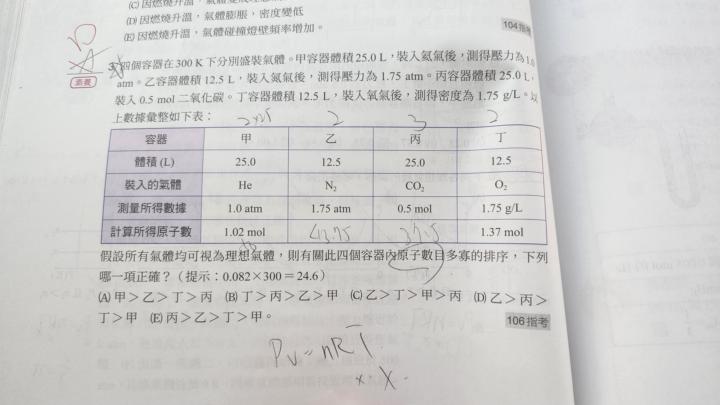 (D) 因燃燒升溫，氣體膨脹，密度變低
(E) 因燃燒升溫，氣體碰撞燈壁頻率增加。
104指考
素養
3. 四個容器在 300 K 下分別盛裝氣體。甲容器體積 25.0 L，裝入氦氣後，測得壓力為 1.0
atm。乙容器體積 12.5 L，裝入氮氣後，測得壓力為 1.75 atm。丙容器體積 25.0 L，
裝入 0.5 mol 二氧化碳。丁容器體積 12.5 L，裝入氧氣後，測得密度為 1.75 g/L。以
上數據彙整如下表：
2 3 2
容器 甲 乙 丙 丁
體積 (L) 25.0 12.5 25.0 12.5
裝入的氣體 He N₂ CO₂ O₂
測量所得數據 1.0 atm 1.75 atm 0.5 mol 1.75 g/L
計算所得原子數 1.02 mol 1.37 mol
假設所有氣體均可視為理想氣體，則有關此四個容器內原子數目多寡的排序，下列
哪一項正確？（提示：0.082×300＝24.6）
(A) 甲＞乙＞丁＞丙 (B) 丁＞丙＞乙＞甲 (C) 乙＞丁＞甲＞丙 (D) 乙＞丙＞
丁＞甲 (E) 丙＞乙＞丁＞甲。
106指考
PV=nRT